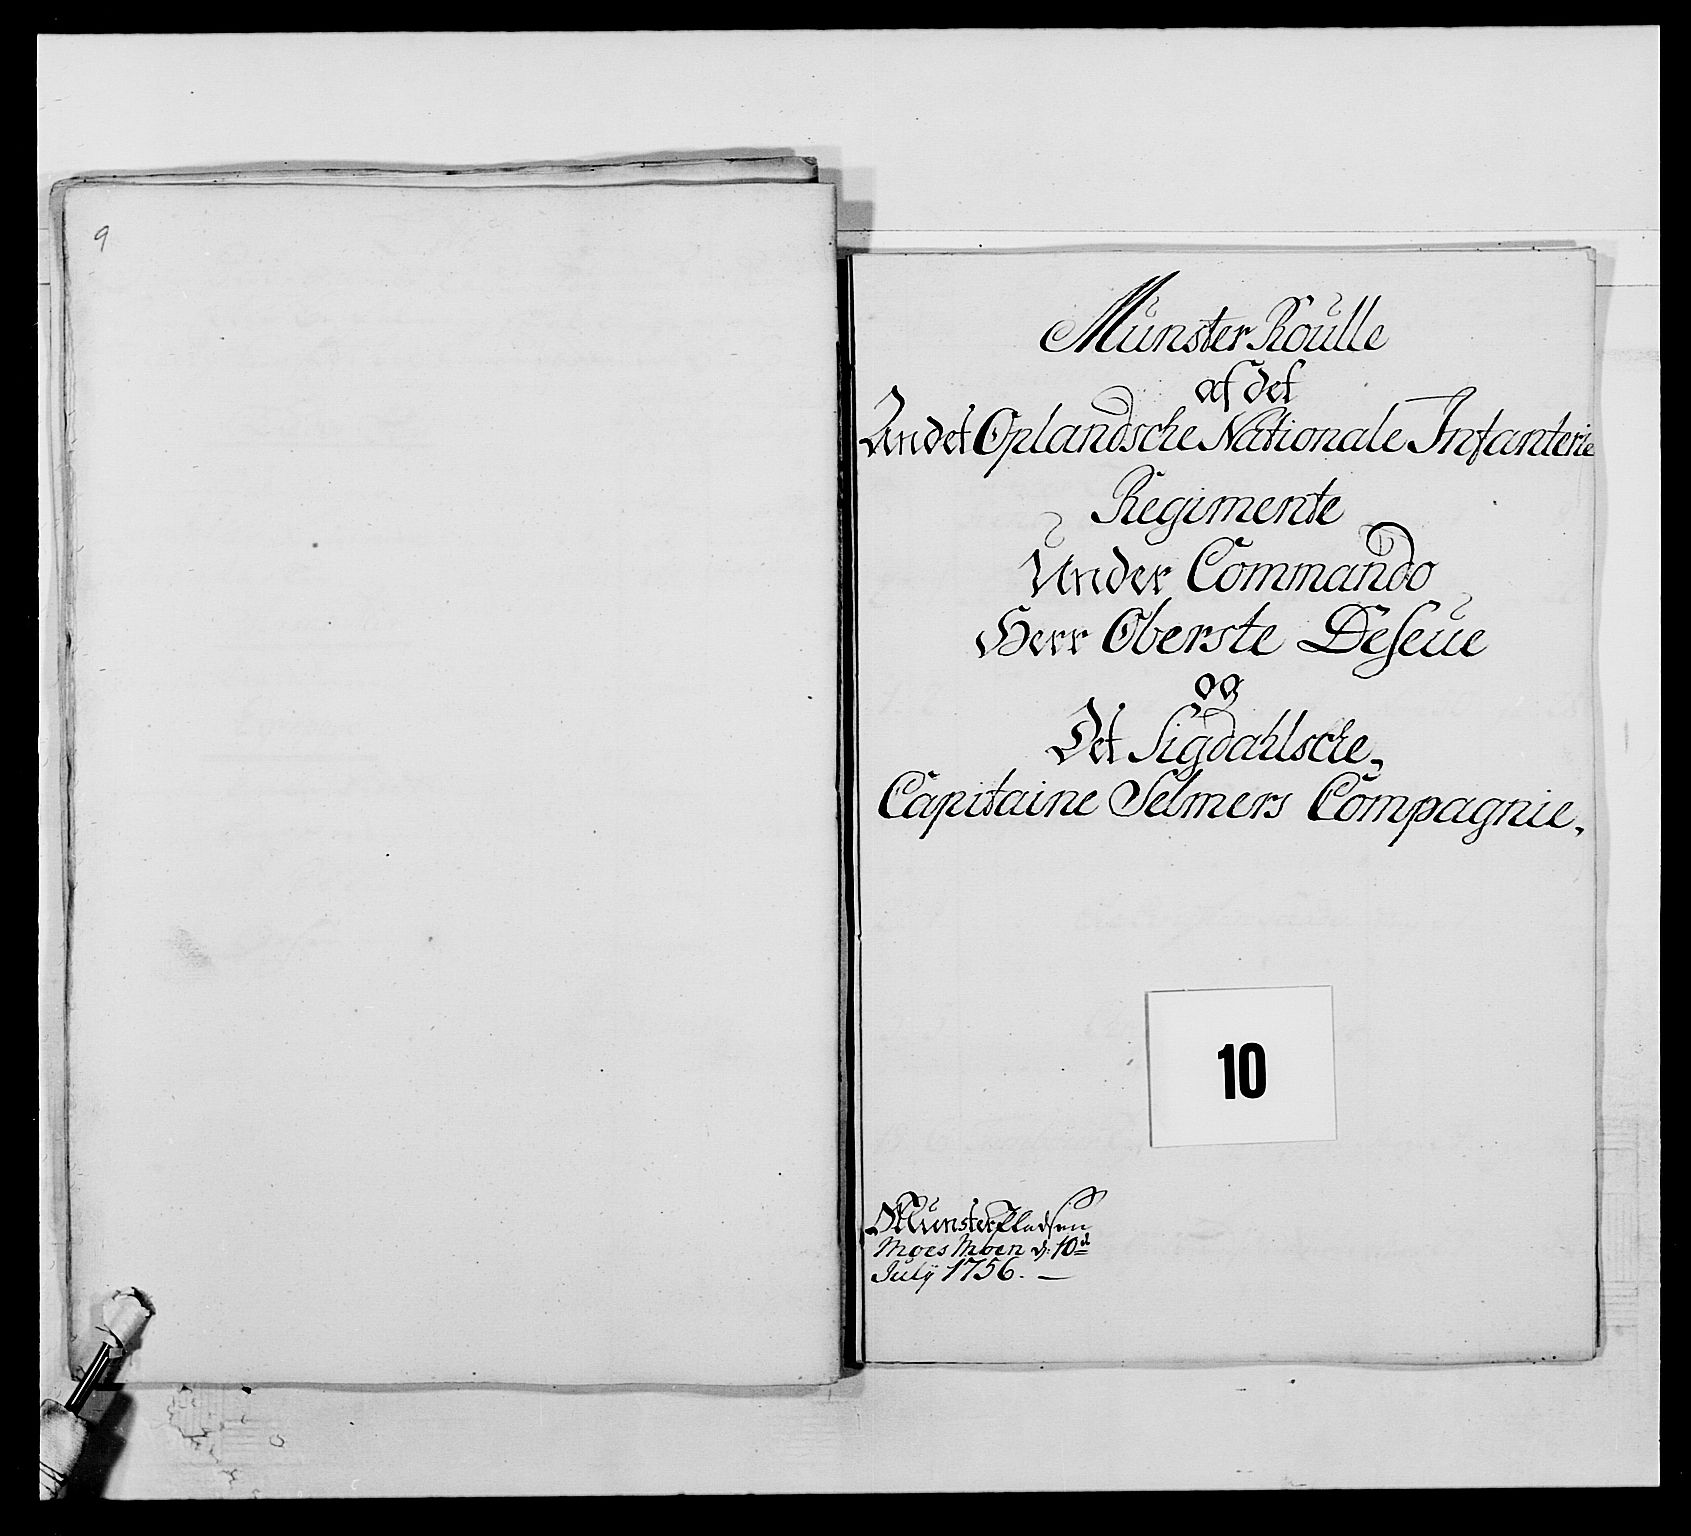 9
Münster Roulle
af det
Andet Oplandsche Nationale Infanterie
Regimente
Under Commando
Herr Oberste DeSeue
og
Det Sigdahlsche,
Capitaine Selmers Compagnie,
10
Münster Pladsen
Moes Moen d: 10d
Julÿ 1756. —